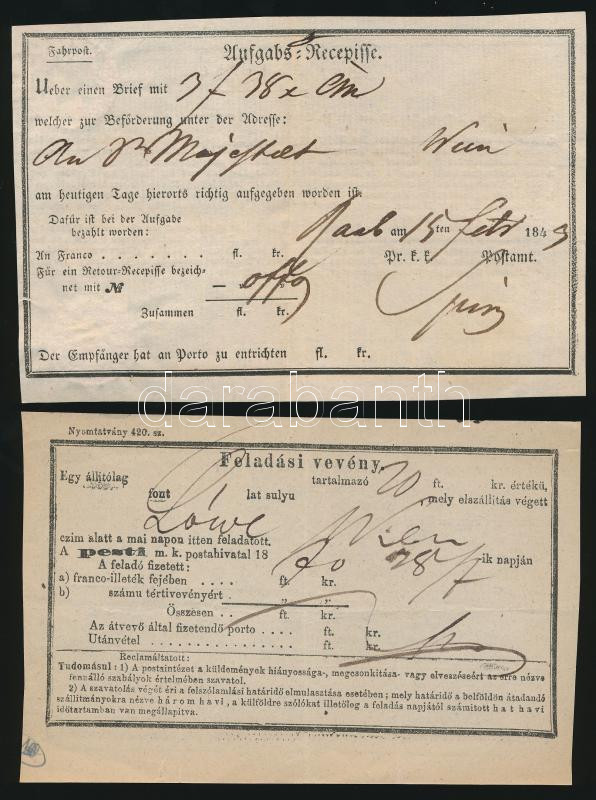 Fahrpost.
Aufgabs-Recepisse.
Ueber einen Brief mit 3 f 38 x CM
welcher zur Beförderung unter der Adresse:
An Sr Majestaet Wien
am heutigen Tage hierorts richtig aufgegeben worden ist.
Dafür ist bei der Aufgabe
bezahlt worden:
Raab am 15ten Febr 184
An Franco . . . . . . . fl. kr.
Pr. k. k. Postamt.
Für ein Retour-Recepisse bezeich-
net mit №
Zusammen fl. kr.
Der Empfänger hat an Porto zu entrichten fl. kr.
darabanth
Nyomtatvány 420. sz.
Feladási vevény.
Egy állitólag tartalmazó 20 ft. kr. értékü,
font lat sulyu , mely elszállitás végett
Löwe Wien
czim alatt a mai napon itten feladatott.
A pesti m. k. postahivatal 18 70 28/7 ik napján
A feladó fizetett:
a) franco-illeték fejében . . . . ft. kr.
b) számu tértivevényért . „ „
Összesen . . . ft. kr.
Az átvevő által fizetendő porto . . . . ft. kr.
Utánvétel . . . . . . . . . . . . . ft. kr.
Reclamáltatott:
Tudomásul: 1) A postaintézet a küldemények hiányossága-, megcsonkitása- vagy elveszéseért az erre nézve
fennálló szabályok értelmében szavatol.
2) A szavatolás végét éri a felszólamlási határidő elmulasztása esetében; mely határidő a belföldön átadandó
szállitmányokra nézve három havi, a külföldre szólókat illetőleg a feladás napjától számitott hat havi
időtartamban van megállapitva.